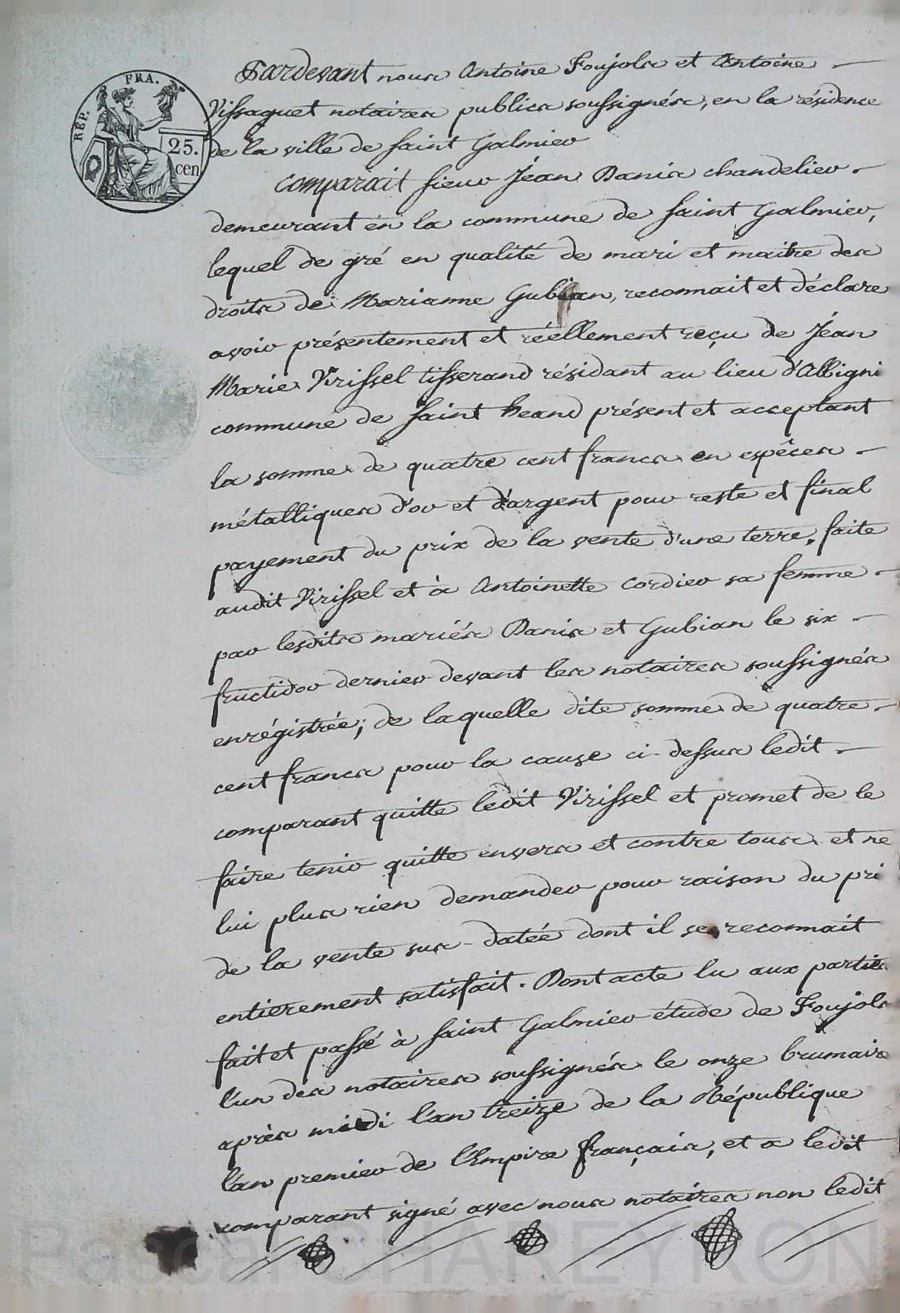 RÉP. FRA.
25.
cen
Pardevant nous Antoine Foujols et Antoine
Vissaguet notaires publics soussignés, en la résidence
de la ville de saint Galmier
comparait sieur Jéan Danis chandelier
demeurant en la commune de saint Galmier,
lequel de gré en qualité de mari et maitre des
droits de Marianne Gubian, reconnait et déclare
avoir présentement et réellement reçu de Jéan
Marie Virissel tisserand résidant au lieu d'Albigni
commune de saint heand présent et acceptant
la somme de quatre cent francs en espèces
métalliques d'or et d'argent pour reste et final
payement du prix de la vente d'une terre, faite
audit Virissel et à Antoinette cordier sa femme
par lesdits mariés Danis et Gubian le six
fructidor dernier devant les notaires soussignés
enrégistrée; de laquelle dite somme de quatre
cent francs pour la cause ci-dessus ledit
comparant quitte ledit Virissel et promet de le
faire tenir quitte envers et contre tous et ne
lui plus rien demander pour raison du pri
de la vente sus-datée dont il se reconnait
entierement satisfait. Dont acte lu aux parties
fait et passé à saint Galmier étude de Foujols
l'un des notaires soussignés le onze brumaire
après midi l'an treize de la République
l'an premier de l'Empire français, et a ledit
comparant signé avec nous notaires non ledit
Pascal CHAREYRON